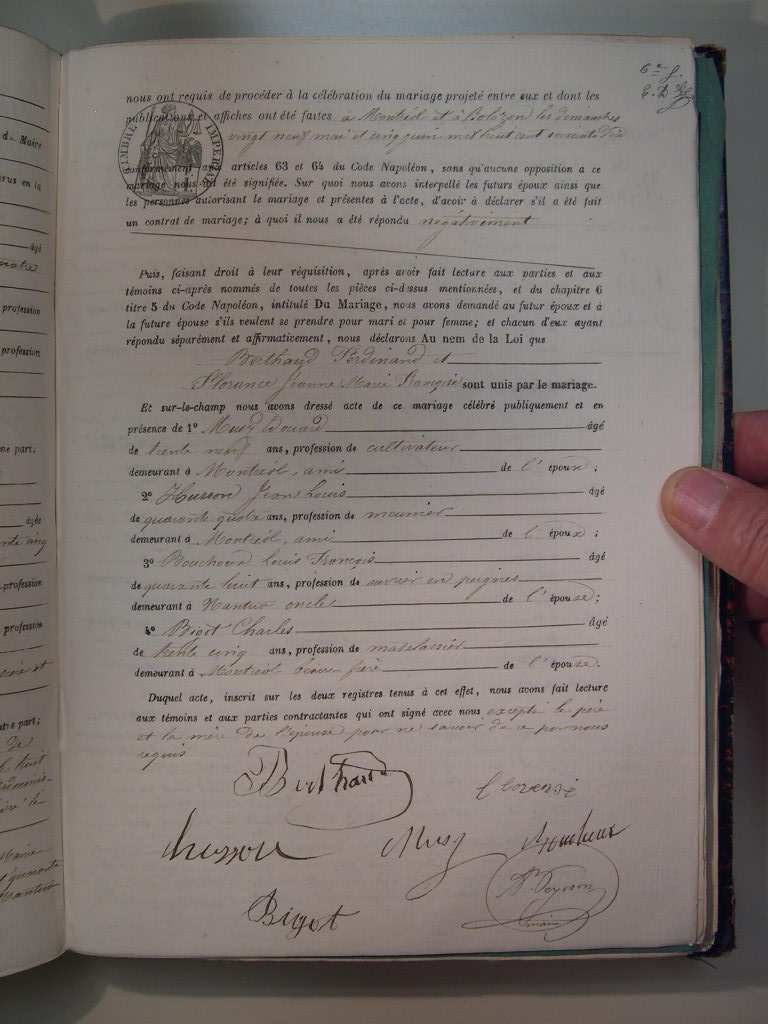 nous ont requis de procéder à la célébration du mariage projeté entre eux et dont les
publications et affiches ont été faites à Montréal et à Bolozon les dimanches
vingt neuf mai et cinq juin mil huit cent soixante dix
conformément aux articles 63 et 64 du Code Napoléon, sans qu'aucune opposition a ce
mariage nous ait été signifiée. Sur quoi nous avons interpellé les futurs époux ainsi que
les personnes autorisant le mariage et présentes à l'acte, d'avoir à déclarer s'il a été fait
un contrat de mariage; à quoi il nous a été répondu négativement
Puis, faisant droit à leur réquisition, après avoir fait lecture aux parties et aux
témoins ci-après nommés de toutes les pièces ci-dessus mentionnées, et du chapitre 6
titre 5 du Code Napoléon, intitulé Du Mariage, nous avons demandé au futur époux et à
la future épouse s'ils veulent se prendre pour mari et pour femme; et chacun d'eux ayant
répondu séparément et affirmativement, nous déclarons Au nem de la Loi que
Berthaud Ferdinand et
Florence Jeanne Marie Françoise sont unis par le mariage.
Et sur-le-champ nous avons dressé acte de ce mariage célébré publiquement et en
présence de 1° Musy Edouard âgé
de trente neuf ans, profession de cultivateur
demeurant à Montréal, ami de l'époux;
2° Husson Jean Louis âgé
de quarante quatre ans, profession de meunier
demeurant à Montréal, ami de l'époux;
3° Bouchoux Louis François âgé
de quarante huit ans, profession de ouvrier en peignes
demeurant à Nantua oncle de l'épouse;
4° Bigot Charles âgé
de trente cinq ans, profession de matelassier
demeurant à Montréal beau frère de l'épouse.
Duquel acte, inscrit sur les deux registres tenus à cet effet, nous avons fait lecture
aux témoins et aux parties contractantes qui ont signé avec nous excepté le père
et la mère de l'épouse pour ne savoir de ce par nous
requis
Berthaud
Florence
husson Musy bouchoux
Bigot
maire
TIMBRE IMPÉRIAL
du Maire
en la
âgé
profession
profession
part.
profession
profession
part;